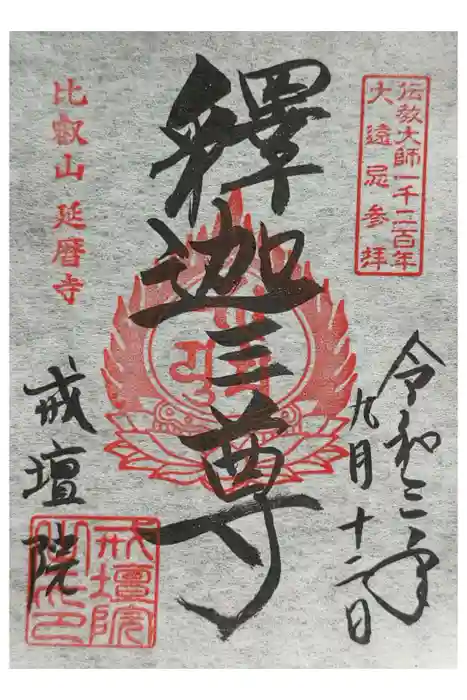 伝教大師一千二百年
大遠忌参拝
令和三年
九月十二日
釋迦三尊
比叡山 延暦寺
戒壇院
戒壇院